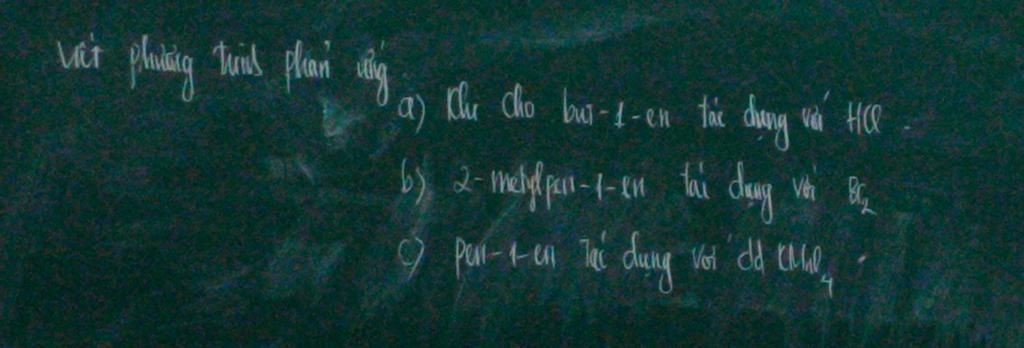 Viết phương trình phản ứng
a) Khi cho but-1-en tác dụng với HCl.
b) 2-metylpen-1-en tác dụng với Br2
c) pen-1-en tác dụng với dd KMnO4.